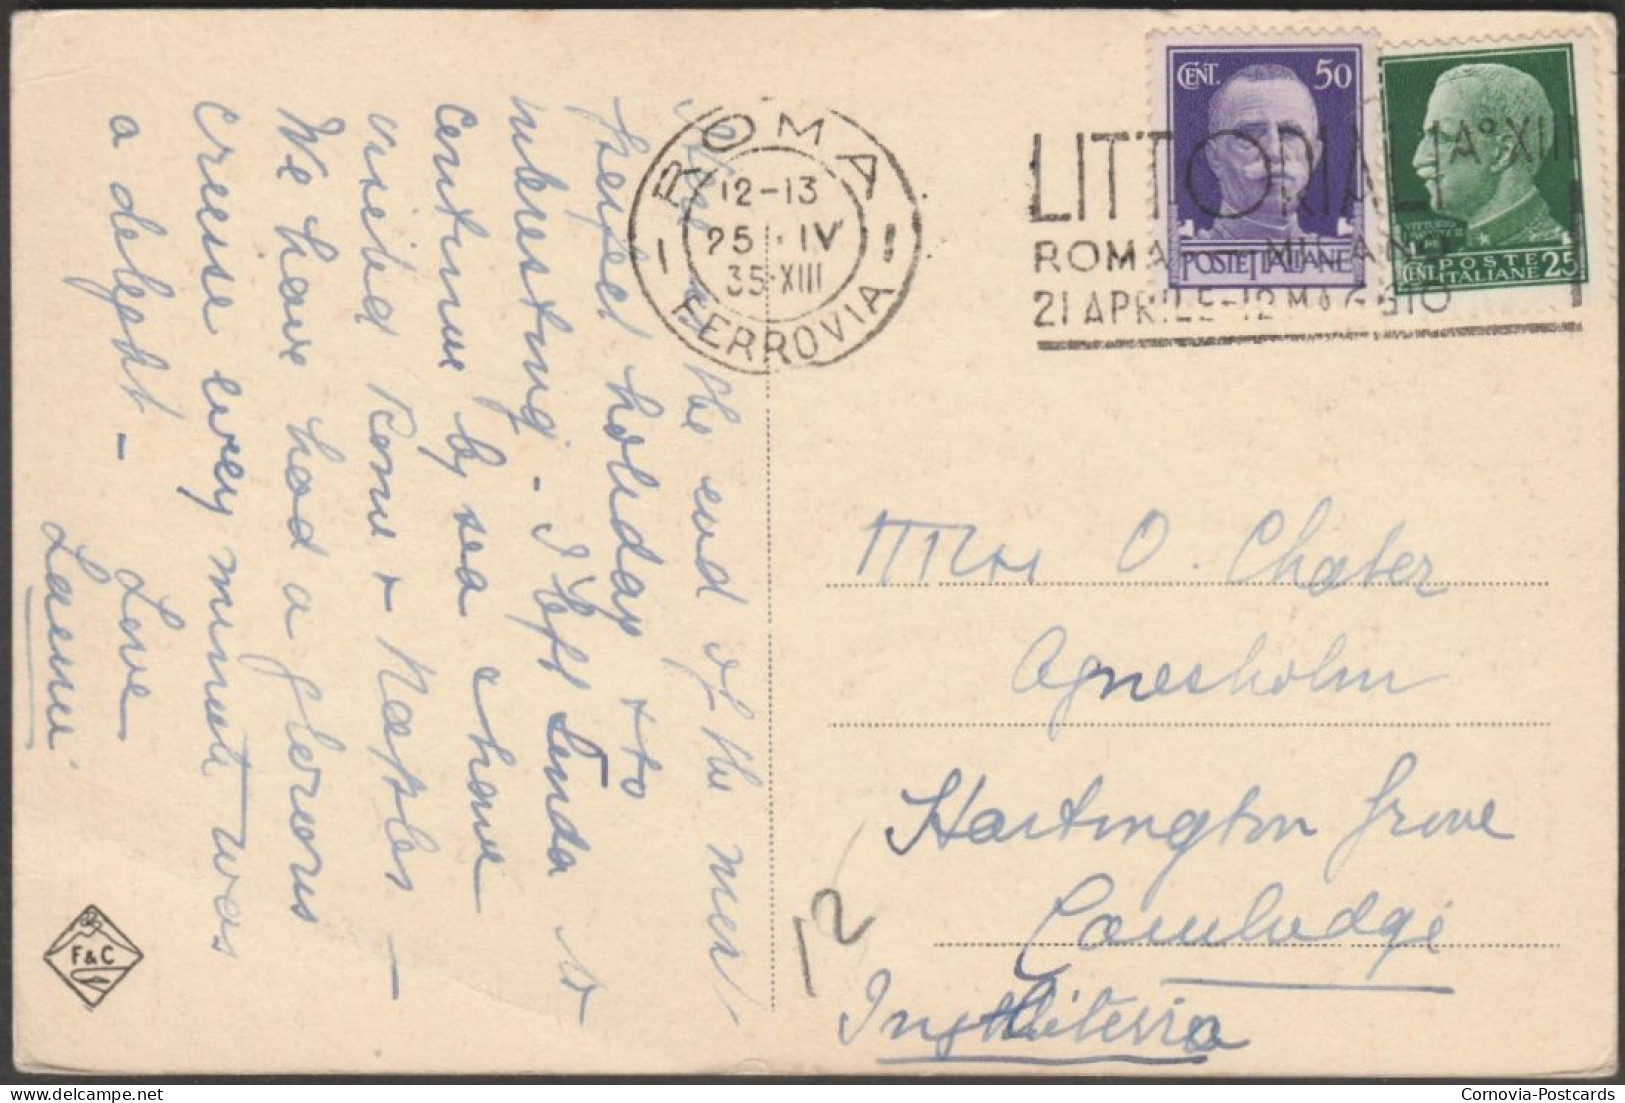 the end of the most
perfect holiday & so
interesting - I left Linda to
continue by sea & have
visited Rome & Naples -
We have had a glorious
cruise every minute was
a delight -
Love
F & C
ROMA
12-13
25 · IV
35·XIII
FERROVIA
LITTORIALI A° XIII
ROMA MILANO
21 APRILE-12 MAGGIO
CENT. 50
POSTE ITALIANE
POSTE
CENT. ITALIANE 25
Mrs O. Chater
Agnesholm
Hartington Grove
Cambridge
Inghilterra
12
Cornovia-Postcards